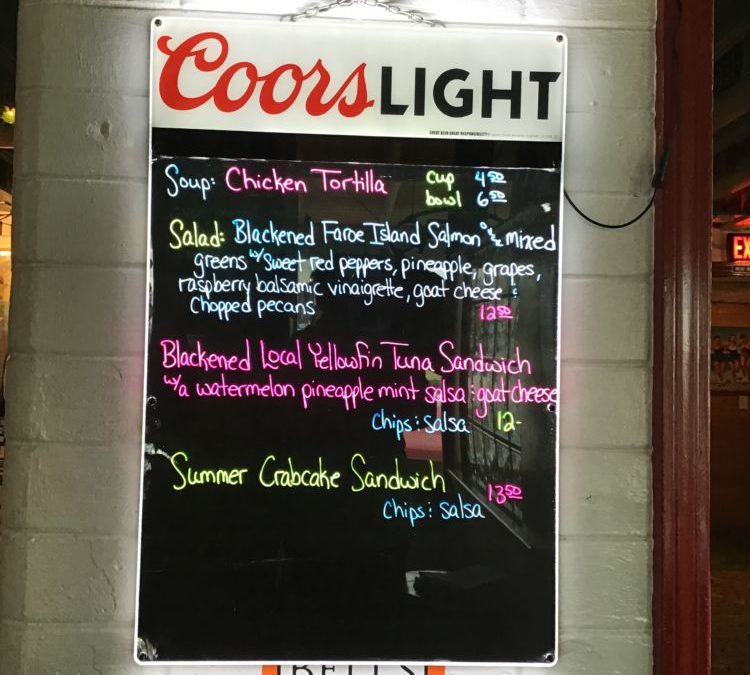 Coors LIGHT
GREAT BEER GREAT RESPONSIBILITY
Soup: Chicken Tortilla cup 4 50
bowl 6 50
Salad: Blackened Faroe Island Salmon o/ mixed
greens w/ sweet red peppers, pineapple, grapes,
raspberry balsamic vinaigrette, goat cheese &
Chopped pecans 12 50
Blackened Local Yellowfin Tuna Sandwich
w/a watermelon pineapple mint salsa & goat cheese
Chips & salsa 12-
Summer Crabcake Sandwich 13 50
Chips & salsa
EX
BELL'S